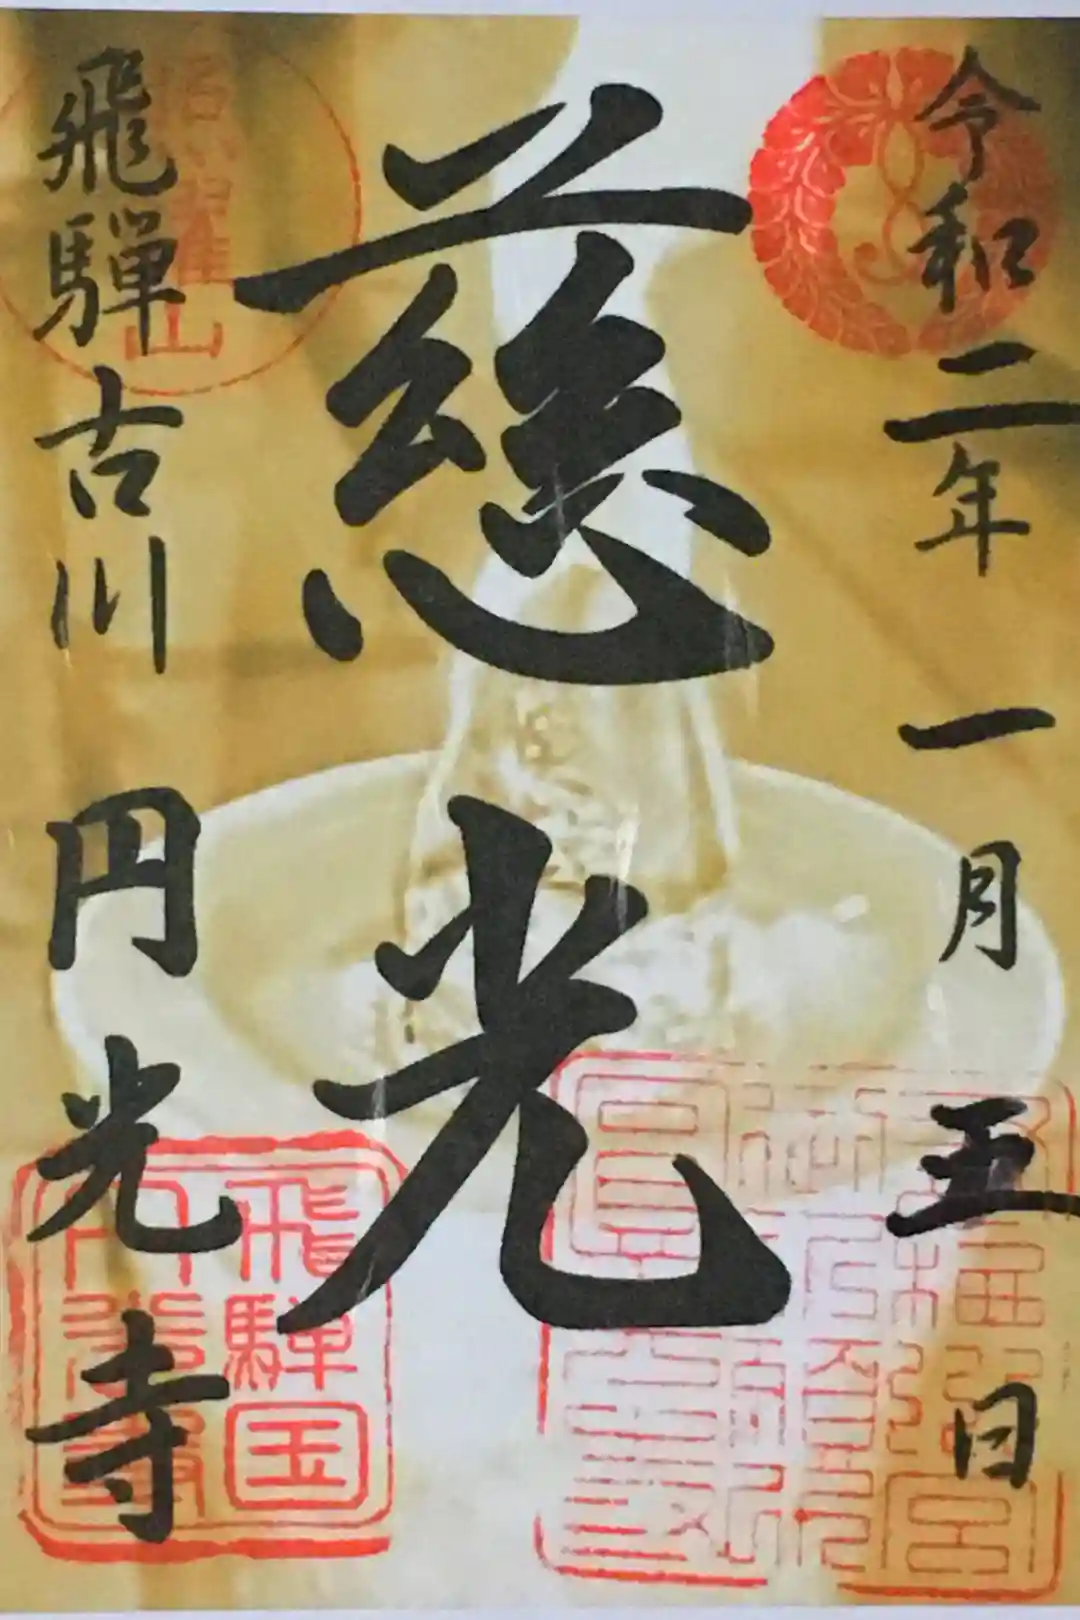 令和二年一月五日
慈光
飛騨古川
円光寺
飛騨国